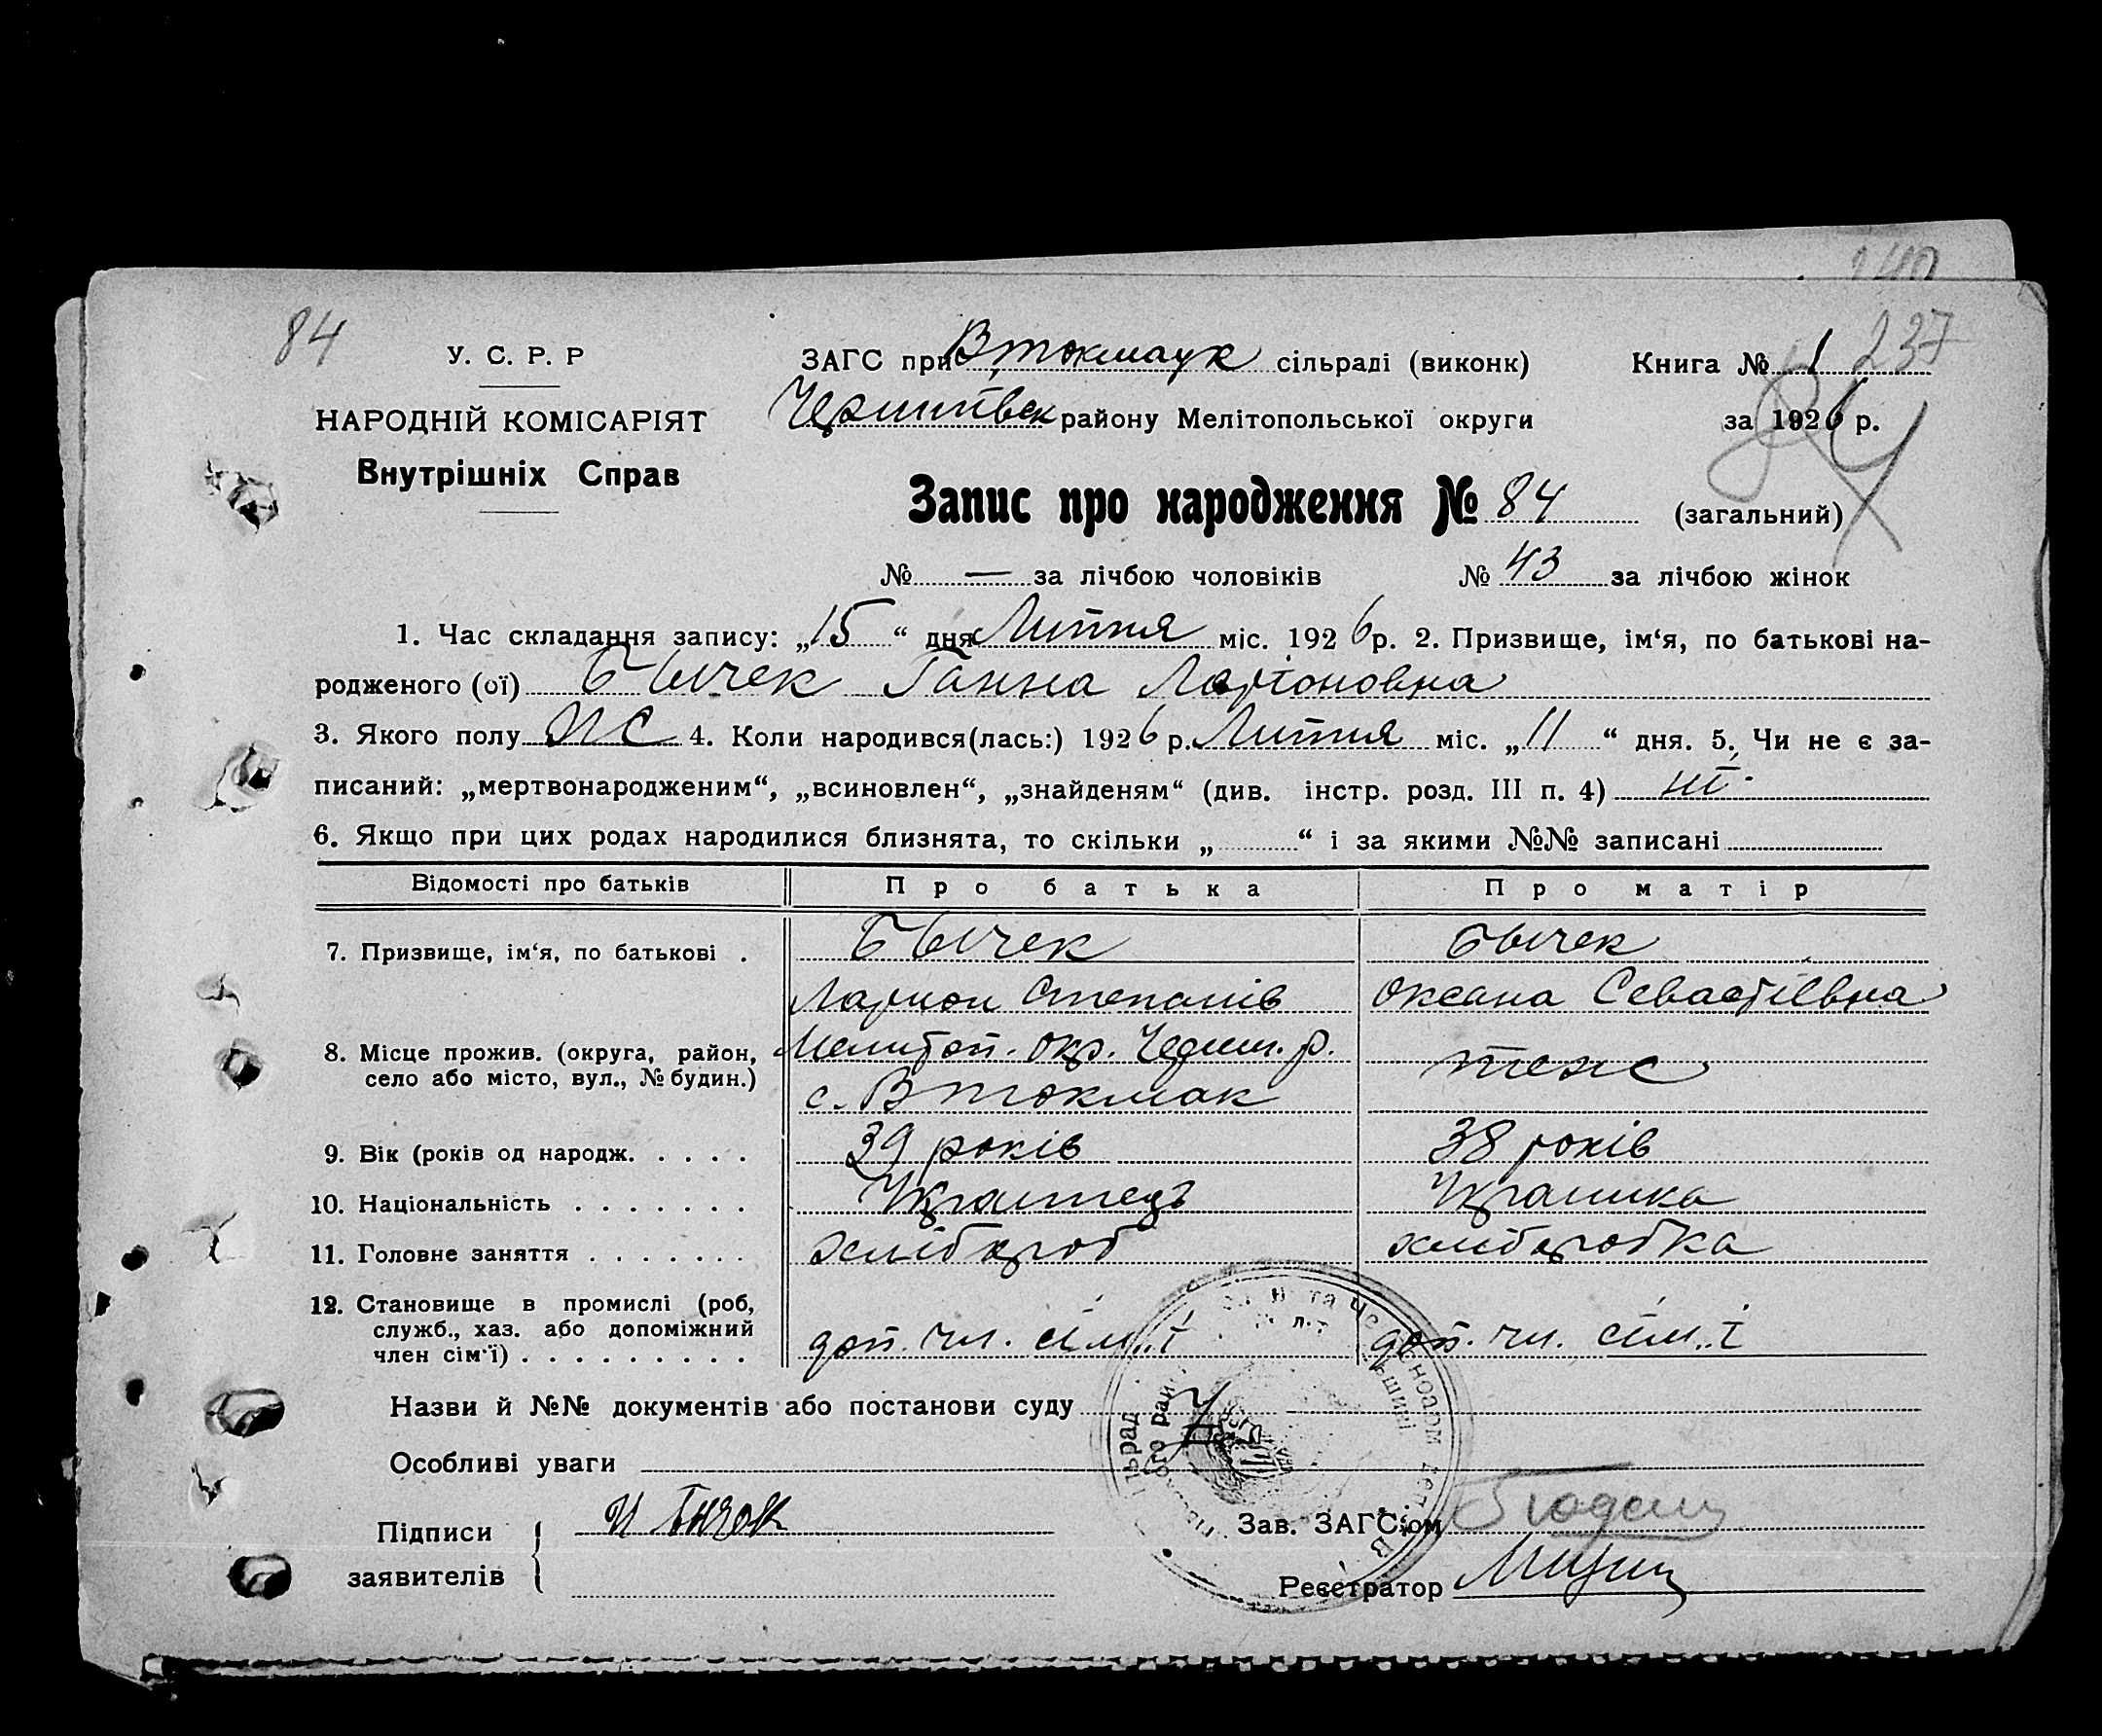 140
84
237
У. С. Р. Р
ЗАГС при В, токмацк сільраді (виконк)
Книга № 1
НАРОДНІЙ КОМІСАРІЯТ
району Мелітопольської округи
за 1926 р.
84
Внутрішніх Справ
Запис про народження № 84 (загальний)
№ — за лічбою чоловіків № 43 за лічбою жінок
1. Час складання запису: „15“ дня Липня міс. 1926 р. 2. Призвище, ім‘я, по батькові на-
родженого (ої) Бычек Ганна Ларіоновна
3. Якого полу Ж 4. Коли народився(лась:) 1926 р. Липня міс. „11“ дня. 5. Чи не є за-
писаний: „мертвонародженим“, „всиновлен“, „знайденям“ (див. інстр. розд. III п. 4) ні
6. Якщо при цих родах народилися близнята, то скільки „ “ і за якими №№ записані
Відомості про батьків Про батька Про матір
7. Призвище, ім‘я, по батькові . Бычек Бычек
Ларион Степанів Оксана Севастіевна
8. Місце прожив. (округа, район, село або місто, вул., № будин.) Мелитоп. окр. Черниг. р. тож
с. В токмак
9. Вік (років од народж. . . . . 39 років 38 років
10. Національність . . . . . . . Украинець Украинка
11. Головне заняття . . . . . . . хлібороб хлиборобка
12. Становище в промислі (роб,
служб., хаз. або допоміжний
член сім‘ї) . . . . . . . . . доп. чл. сім"ї доп. чл. сім"ї
Назви й №№ документів або постанови суду
Особливі уваги
Підписи
заявителів
И Бичок
Зав. ЗАГС‘ом
Реєстратор